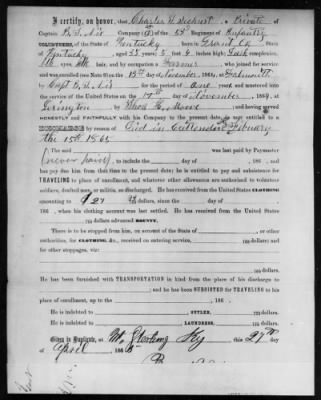 I certify, on honor, that Charles Dicghurt a Private
of Captain B. S. Nis Company ( ) of the 54th Regiment of Infantry
VOLUNTEERS, of the State of Kentucky born in Grant Co. State
of Kentucky, aged 33 years; 5 feet 6 inches high; Dark complexion,
eyes, hair, and by occupation a Farmer, who joined for service
and was enrolled on the 13th day of November, 1864, at Falmouth
by Capt B. S. Nis for the period of one years and mustered
into the service of the United States on the 17th day of November, 1864, at
Lexington by Thos E. Moore and having served
HONESTLY and FAITHFULLY with his Company to the present date, is not entitled to a
DISCHARGE by reason of Died in Cattendens Febuary
the 15th 1865
The said was last paid by Paymaster
(never paid) to include the day of , 186 , and
has pay due him from that time to the present date; he is entitled to pay and subsistence for
TRAVELING to place of enrollment, and whatever other allowances are authorized to volunteer
soldiers, drafted men, or militia, so discharged. He has received from the United States CLOTHING
amounting to $27 dollars, since the day of
186 , when his clothing account was last settled. He has received from the United States
dollars advanced BOUNTY.
There is to be stopped from him, on account of the State of , or other
authorities, for CLOTHING, &c., received on entering service, dollars; and for
other stoppages, viz:
dollars.
He has been furnished with TRANSPORTATION in kind from the place of his discharge to
and he has been SUBSISTED for TRAVELING to his
place of enrollment, up to the , 186
He is indebted to , SUTLER, dollars.
He is indebted to , LAUNDRESS, dollars.
Given in Duplicate, at Mt. Sterling Ky this 27th
of April 1865